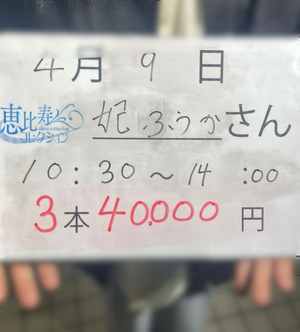 4月9日
恵比寿
コレクション
妃ふうかさん
10:30～14:00
3本40.000円